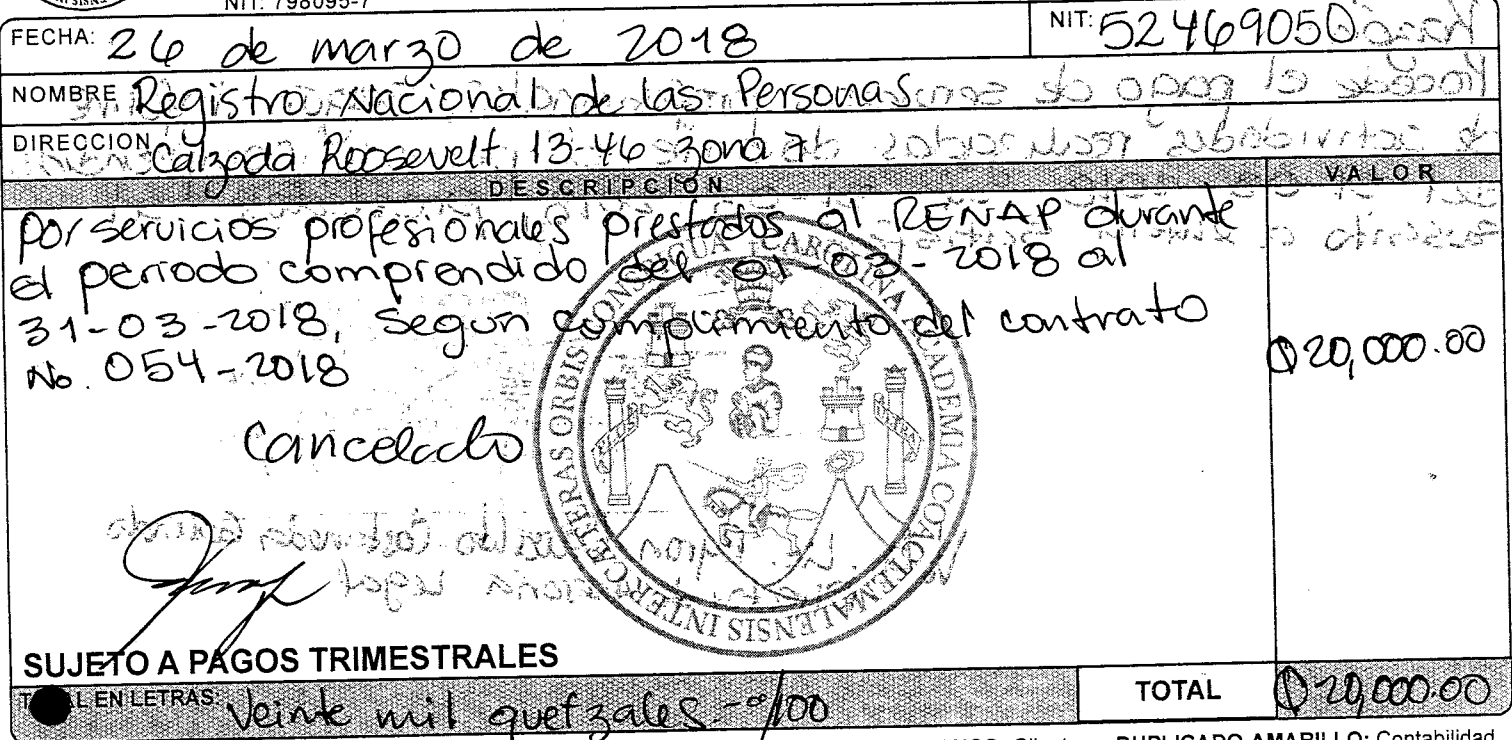 NIT: 798095-7
FECHA: 26 de marzo de 2018 NIT: 52469050
NOMBRE Registro Nacional de las Personas
DIRECCION Calzada Roosevelt 13-46 zona 7
DESCRIPCION VALOR
por servicios profesionales prestados al RENAP durante
el periodo comprendido del 01-03-2018 al
31-03-2018, según cumplimiento del contrato
No. 054-2018
Q20,000.00
Cancelado
CAROLINA ACADEMIA COACTEMALENSIS INTER CÆTERAS ORBIS CONSPICUA
SUJETO A PAGOS TRIMESTRALES
TOTAL EN LETRAS: Veinte mil quetzales.-º/100 TOTAL Q20,000.00
DUPLICADO AMARILLO: Contabilidad